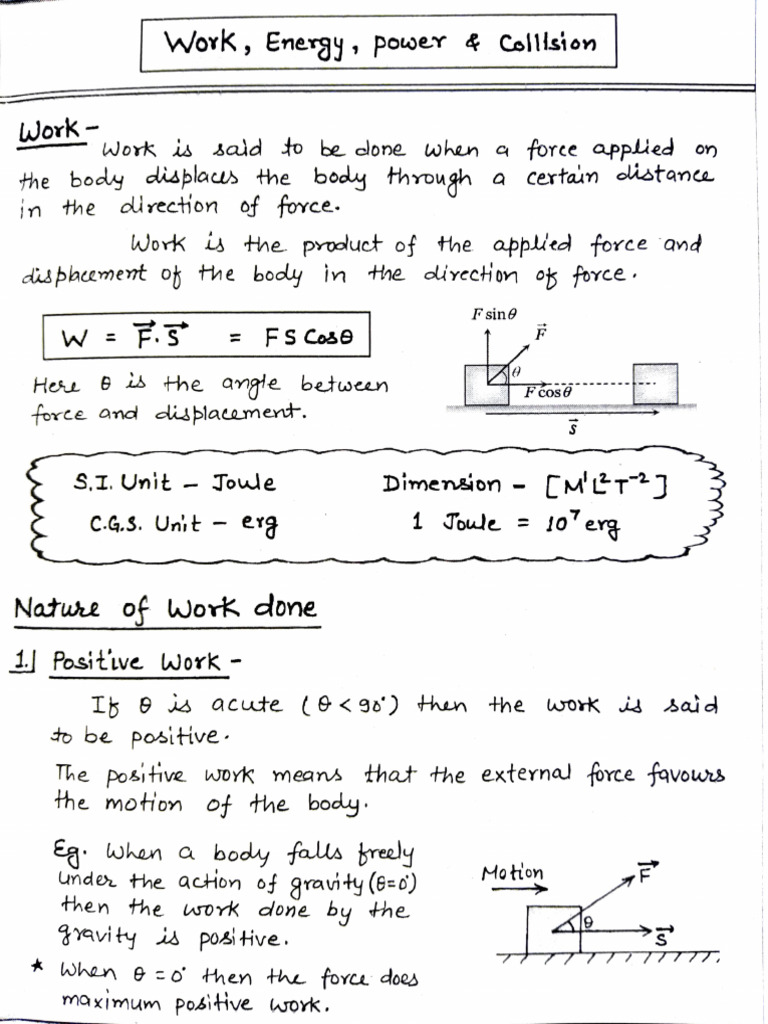 Work, Energy, power & Collision
Work -
Work is said to be done when a force applied on
the body displaces the body through a certain distance
in the direction of force.
Work is the product of the applied force and
displacement of the body in the direction of force.
W = F⃗.S⃗ = F S Cosθ
F sinθ
F⃗
θ
F cosθ
s⃗
Here θ is the angle between
force and displacement.
S.I. Unit - Joule
Dimension - [M¹L²T⁻²]
C.G.S. Unit - erg
1 Joule = 10⁷ erg
Nature of Work done
1.] Positive Work -
If θ is acute (θ < 90°) then the work is said
to be positive.
The positive work means that the external force favours
the motion of the body.
Eg. When a body falls freely
under the action of gravity (θ=0°)
then the work done by the
gravity is positive.
* When θ = 0° then the force does
maximum positive work.
Motion
F⃗
θ
S⃗